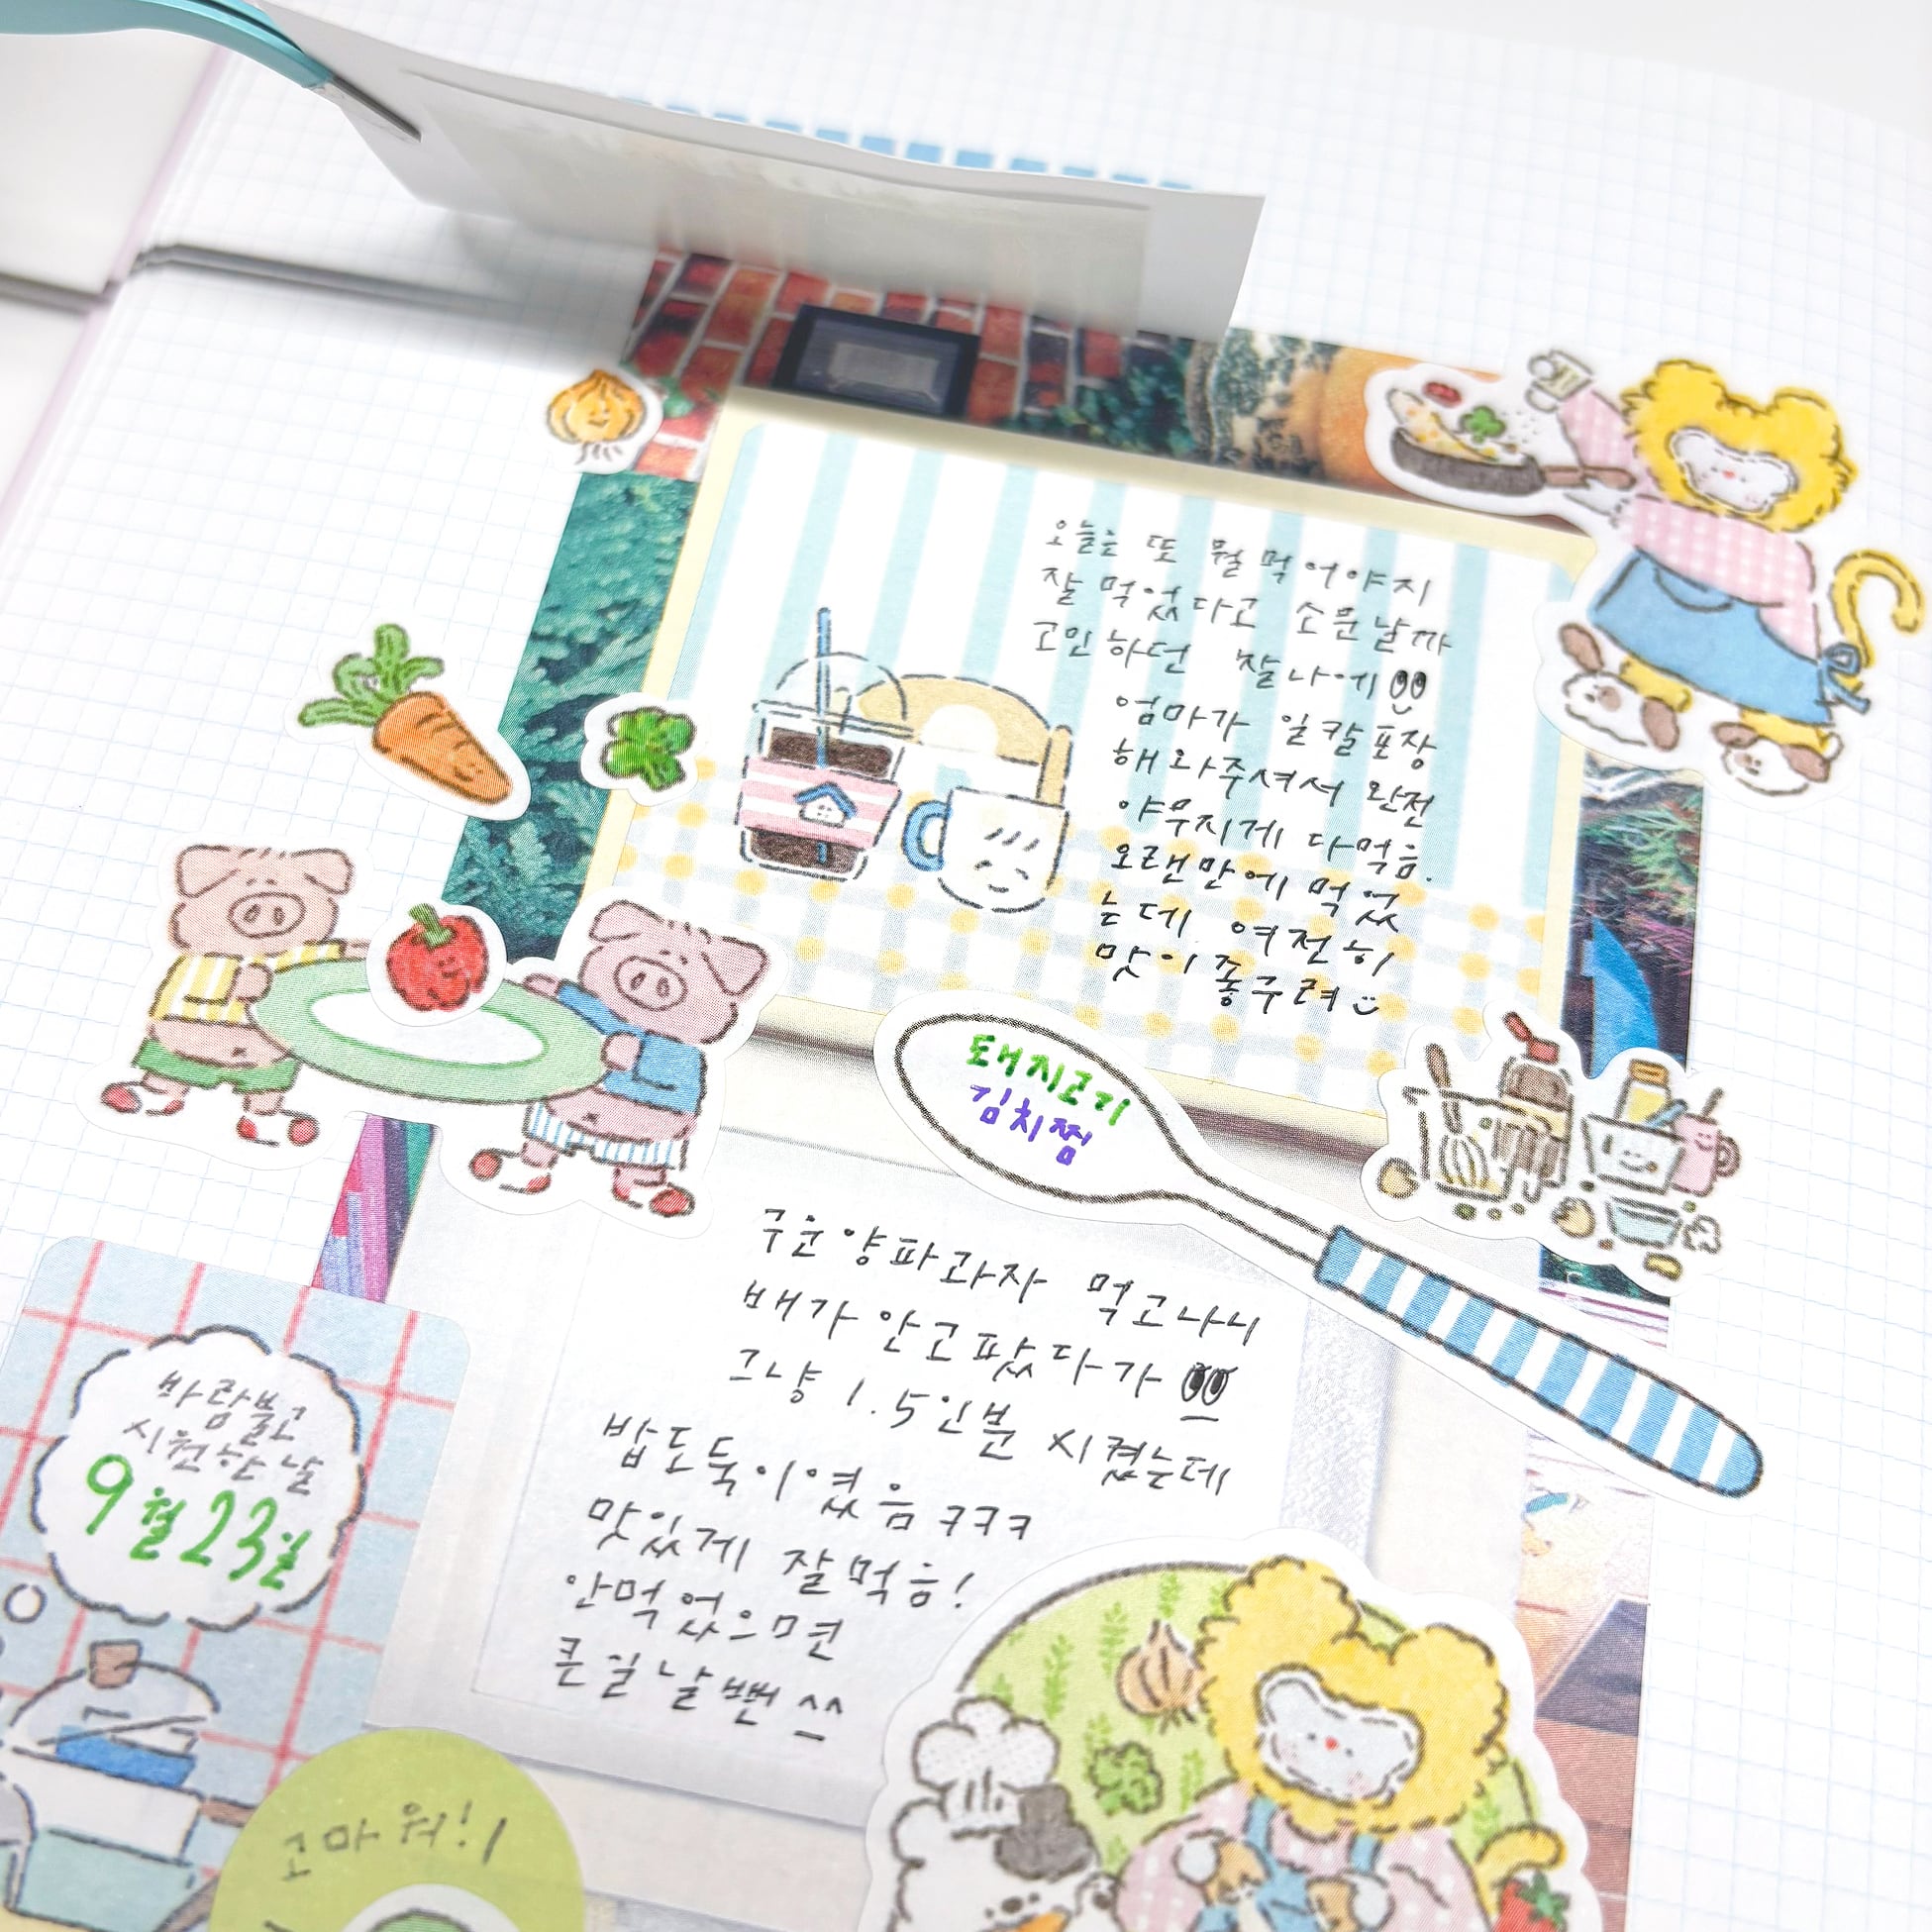 오늘은 또 뭘 먹어야지
잘 먹었다고 소문날까
고민하던 찰나에
엄마가 일칼포장
해와주셔서 완전
야무지게 다먹음.
오랜만에 먹었
는데 여전히
맛이 좋구려
돼지고기
김치찜
구운양파과자 먹고나니
배가 안고팠다가
그냥 1.5인분 시켰는데
밥도둑이였음 ㅋㅋㅋ
맛있게 잘먹음!
안먹었으면
큰일날뻔 ^^
바람불고
시원한 날
9월 23일
고마워!